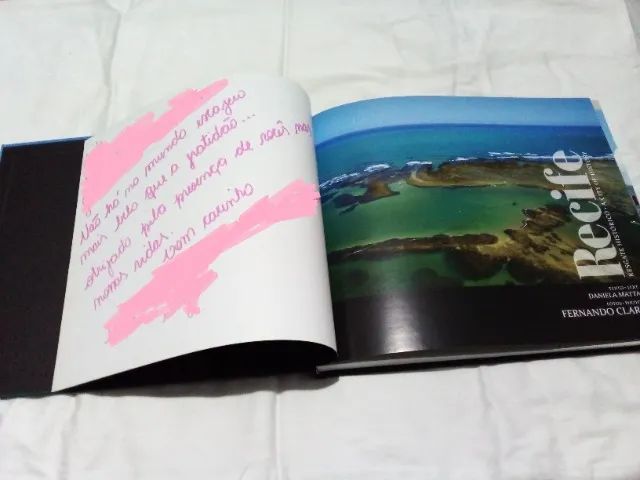 Não há no mundo exagero
mais belo que a gratidão...
obrigado pela presença de vocês nas
nossas vidas.
Com carinho
Recife
RESGATE HISTÓRICO
DANIELA MATTA
FERNANDO CLAR